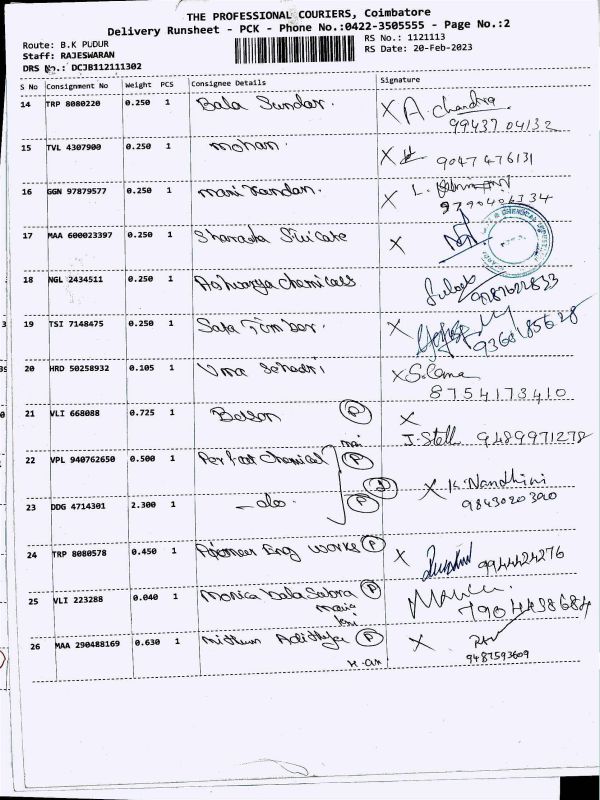 THE PROFESSIONAL COURIERS, Coimbatore
Delivery Runsheet - PCK - Phone No.:0422-3505555 - Page No.:2
Route: B.K PUDUR
RS No.: 1121113
Staff: RAJESWARAN
RS Date: 20-Feb-2023
DRS No.: DCJB112111302
S No Consignment No Weight PCS Consignee Details Signature
14 TRP 8080220 0.250 1 Bala Sundar. X A. Chandra
99437 04132
15 TVL 4307900 0.250 1 mohan. X
9047 476131
16 GGN 97879577 0.250 1 mani kandan. X L.
9790406334
17 MAA 600023397 0.250 1 Sharada X
18 NGL 2434511 0.250 1 Aishwarya chemicals
9087622833
19 TSI 7148475 0.250 1 X
9360185628
20 HRD 50258932 0.105 1 Uma X
8754173410
21 VLI 668088 0.725 1 P X
J. Stell 9489971278
22 VPL 940762650 0.500 1 Perfect chemical P
2 X K. Nandhini
9843020390
23 DDG 4714301 2.300 1 - do - P
24 TRP 8080578 0.450 1 Eng works P X
9944424276
25 VLI 223288 0.040 1 Monica Bala P
7904438684
26 MAA 290488169 0.630 1 P X
9487593609